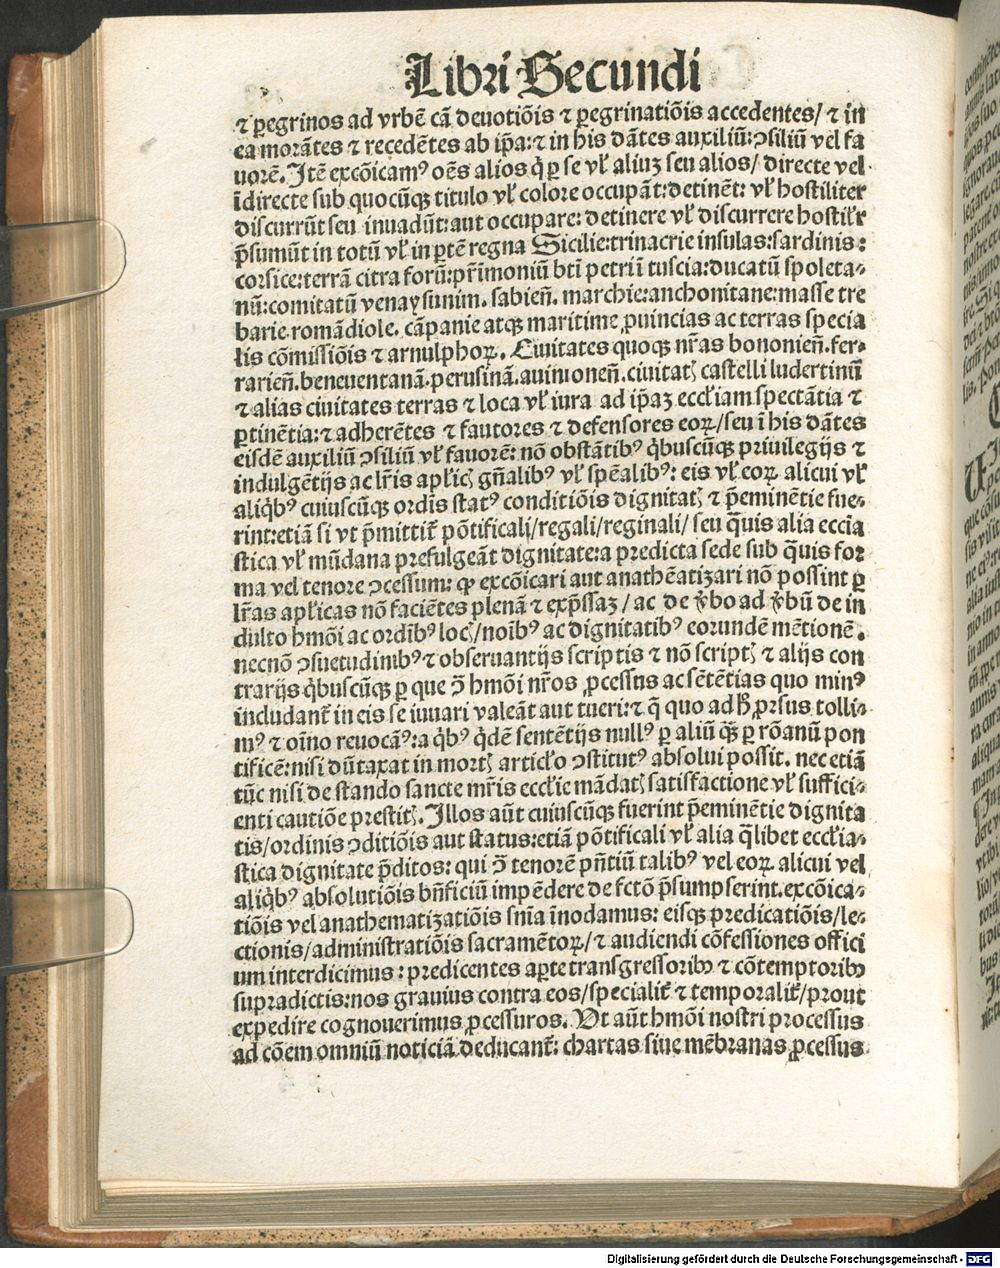 Libri Secundi
⁊ ꝑegrinos ad vrbē cā deuotiōis ⁊ ꝑegrinatiōis accedentes/ ⁊ in
ea morātes ⁊ recedētes ab ip̄a:⁊ in his dātes auxiliū:ↄsiliū vel fa
uorē. Itē excōicamꝰ oēs alios q̇ ꝑ se vł aliuꝫ seu alios/ directe vel
īdirecte sub quocūqꝫ titulo vł colore occupāt:detinēt: vł hostiliter
discurrūt seu inuadūt:aut occupare: detinere vł discurrere hostilr̄
p̄sumūt in totū vł in ꝑtē regna Sicilie:trinacrie insulas:sardinis:
corsice:terrā citra forū:pr̄imoniū bt̄i petri ī tuscia:ducatū spoleta-
nū:comitatū venaysunim. sabien̄. marchie:anchonitane:masse tre
barie.romādiole. cāpanie atqꝫ maritime ꝓuincias ac terras specia
lis cōmissiōis ⁊ arnulphoꝝ. Ciuitates quoqꝫ nr̄as bononien̄.fer-
rarien̄.beneuentanā.perusinā.auinionen̄.ciuitatꝭ castelli ludertinū
⁊ alias ciuitates terras ⁊ loca vł iura ad ip̄aꝫ eccłiam spectātia ⁊
ꝑtinētia:⁊ adherētes ⁊ fautores ⁊ defensores eoꝝ/seu ī his dātes
eisdē auxiliū ↄsiliū vł fauorē: nō obstātibꝰ q̇buscūqꝫ priuilegijs ⁊
indulgētijs ac lr̄is apłicꝭ gn̄alibꝰ vł spēalibꝰ: eis vł eoꝝ alicui vł
aliq̇bꝰ cuiuscūqꝫ ordīs statꝰ conditiōis dignitatꝭ ⁊ p̄eminētie fue-
rint:etiā si vt p̄mittit̄ pōtificali/regali/reginali/ seu q̄uis alia eccīa
stica vł mūdana prefulgeāt dignitate:a predicta sede sub q̄uis for
ma vel tenore ↄcessum: ꝙ excōicari aut anathēatizari nō possint ꝑ
lr̄as apłicas nō faciētes plenā ⁊ exp̄ssaꝫ/ ac de v̄bo ad v̄bū de in
dulto hmōi ac ordībꝰ locꝭ/noībꝰ ac dignitatibꝰ eorundē mētionē.
necnō ↄsuetudinibꝰ ⁊ obseruantijs scriptis ⁊ nō scriptꝭ ⁊ alijs con
trarijs q̇buscūqꝫ ꝑ que ↄ̄ hmōi nr̄os ꝓcessus ac sētētias quo minꝰ
includant̄ in eis se iuuari valeāt aut tueri:⁊ q̄ quo ad h̄ ꝓrsus tolli-
mꝰ ⁊ oīno reuocāꝰ:a q̇bꝰ q̇dē sentētijs nullꝰ ꝑ aliū qꝫ ꝑ rōanū pon
tificē:nisi dūtaxat in mortꝭ articło ↄstitutꝰ absolui possit. nec etiā
tūc nisi de stando sancte mr̄is eccłie mādatꝭ satisfactione vł suffici-
enti cautiōe prestitꝭ. Illos aūt cuiuscūqꝫ fuerint p̄eminētie dignita
tis/ordinis ↄditiōis aut status:etiā pōtificali vł alia q̄libet eccłia-
stica dignitate p̄ditos: qui ↄ̄ tenorē pn̄tiū talibꝰ vel eoꝝ alicui vel
aliq̇bꝰ absolutiōis bn̄ficiū impēdere de fctō p̄sumpserint.excōica-
tiōis vel anathematizatiōis sn̄ia īnodamus: eisqꝫ predicatiōis/le-
ctionis/administratiōis sacramētoꝝ/⁊ audiendi cōfessiones offici
um interdicimus: predicentes aꝑte transgressoribꝫ ⁊ cōtemptoribꝫ
supradictis:nos grauius contra eos/specialit̄ ⁊ temporalit̄/prout
expedire cognouerimus ꝓcessuros. Vt aūt hmōi nostri processus
ad cōem omniū noticiā deducant̄: chartas siue mēbranas ꝓcessus
Digitalisierung gefördert durch die Deutsche Forschungsgemeinschaft - DFG